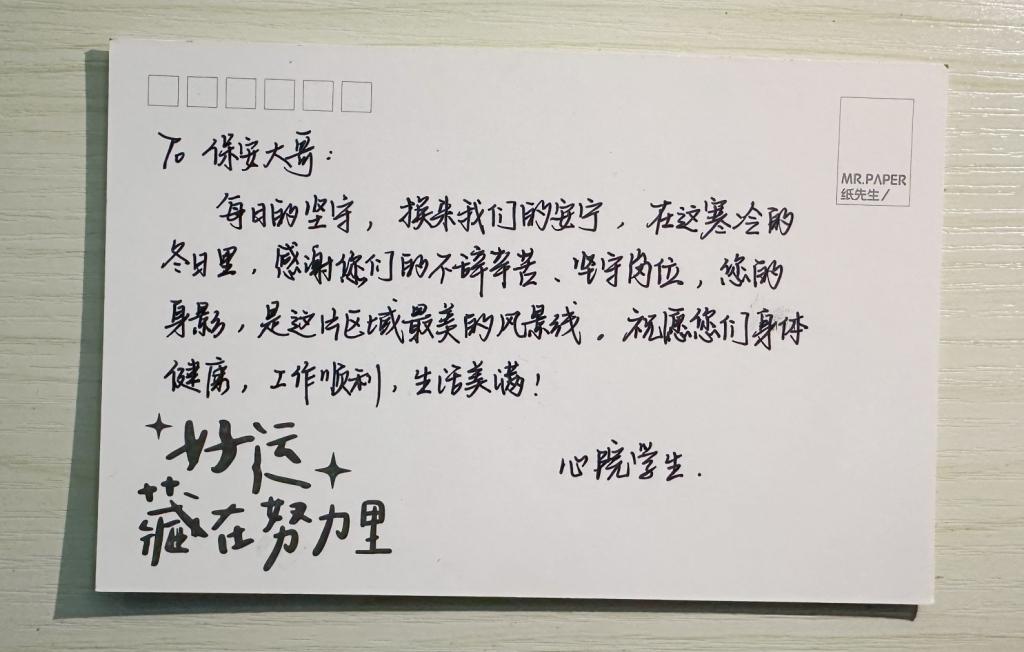 To 保安大哥：
每日的坚守，换来我们的安宁，在这寒冷的
冬日里，感谢您们的不辞辛苦、坚守岗位，您的
身影，是这片区域最美的风景线。祝愿您们身体
健康，工作顺利，生活美满！
心院学生.
好运
藏在努力里
MR.PAPER
纸先生/